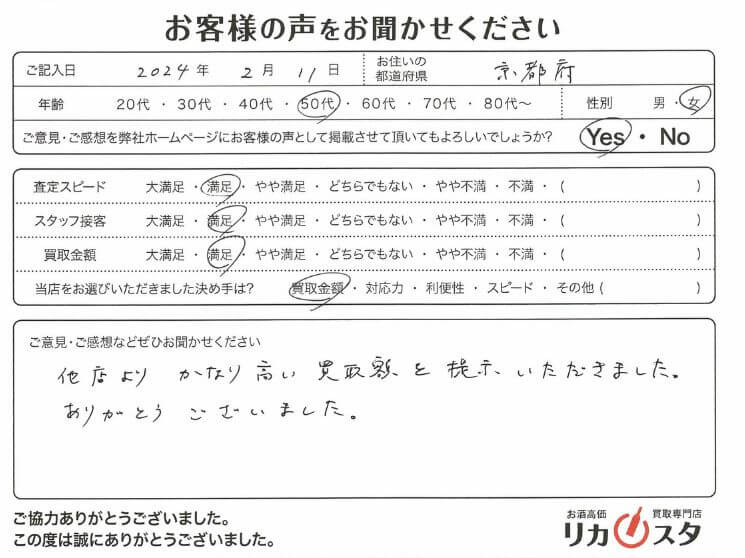 お客様の声をお聞かせください
ご記入日 2024 年 2 月 11 日 お住いの都道府県 京都府
年齢 20代 ・ 30代 ・ 40代 ・ 50代 ・ 60代 ・ 70代 ・ 80代〜 性別 男 ・ 女
ご意見・ご感想を弊社ホームページにお客様の声として掲載させて頂いてもよろしいでしょうか? Yes ・ No
査定スピード 大満足 ・ 満足 ・ やや満足 ・ どちらでもない ・ やや不満 ・ 不満 ・ ( )
スタッフ接客 大満足 ・ 満足 ・ やや満足 ・ どちらでもない ・ やや不満 ・ 不満 ・ ( )
買取金額 大満足 ・ 満足 ・ やや満足 ・ どちらでもない ・ やや不満 ・ 不満 ・ ( )
当店をお選びいただきました決め手は? 買取金額 ・ 対応力 ・ 利便性 ・ スピード ・ その他 ( )
ご意見・ご感想などぜひお聞かせください
他店より かなり高い 買取額を提示いただきました。
ありがとう ございました。
ご協力ありがとうございました。
この度は誠にありがとうございました。
お酒高価 買取専門店
リカスタ